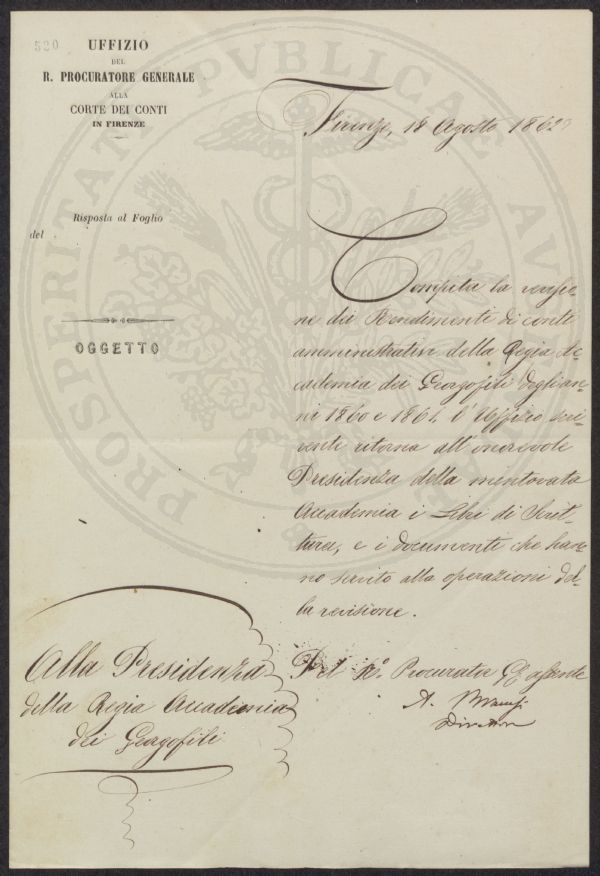 520
UFFIZIO
DEL
R. PROCURATORE GENERALE
ALLA
CORTE DEI CONTI
IN FIRENZE
Firenze, 18 Agosto 1862
Risposta al Foglio
del
OGGETTO
Compita la
ne dei Rendimenti di conti
amministrativi della Regia Ac-
cademia dei Georgofili degli an-
ni 1860 e 1861, l'Uffizio scri-
vente ritorna all'onorevole
Presidenza della mentovata
Accademia i Libri di Scrit-
tura, e i documenti che han-
no servito alla operazioni del-
la revisione.
Pel R.o Procurator Gle assente
A.
Direttore
Alla Presidenza
della Regia Accademia
dei Georgofili
PROSPERITATI PVBLICAE AV